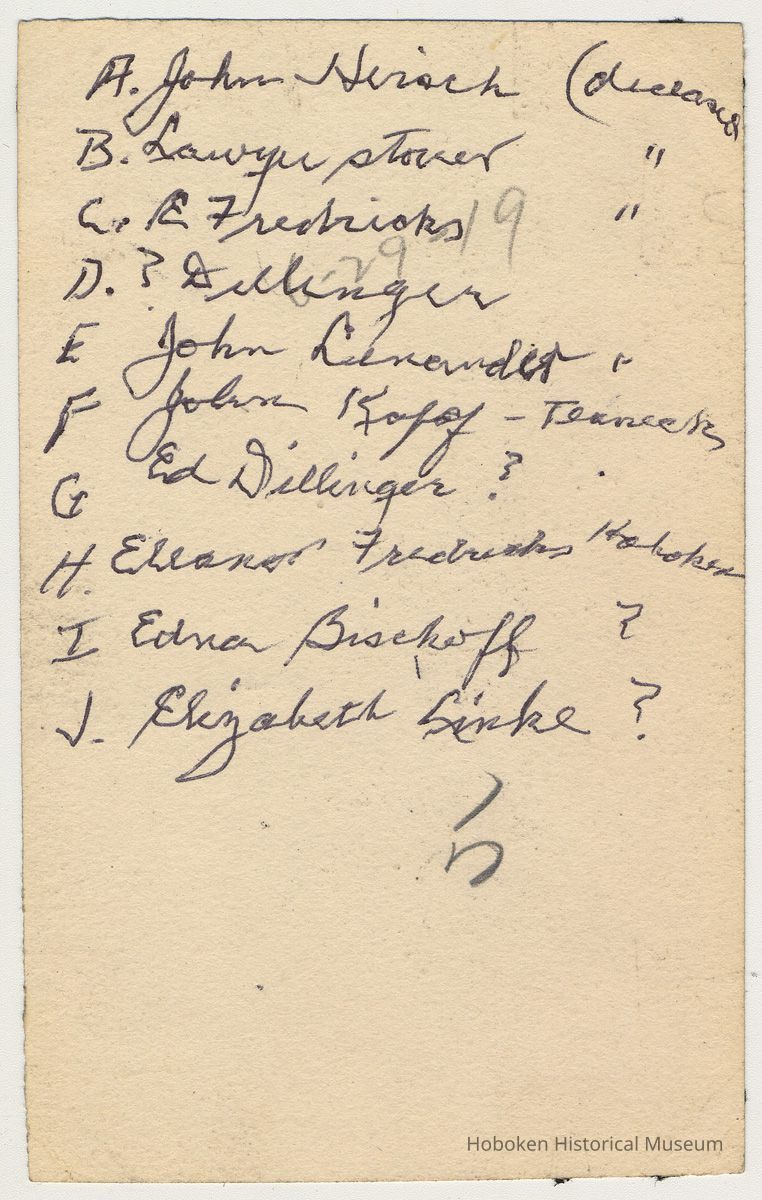 A. John Hirsch (deceased
B. Lawyer Stover "
C. E Fredricks "
19
29
D. ? Dillinger
E John "
F John Kapf - Teaneck
G Ed Dillinger ?
H. Eleanor Fredricks Hoboken
I Edna Bischoff ?
J. Elizabeth Linke ?
Hoboken Historical Museum